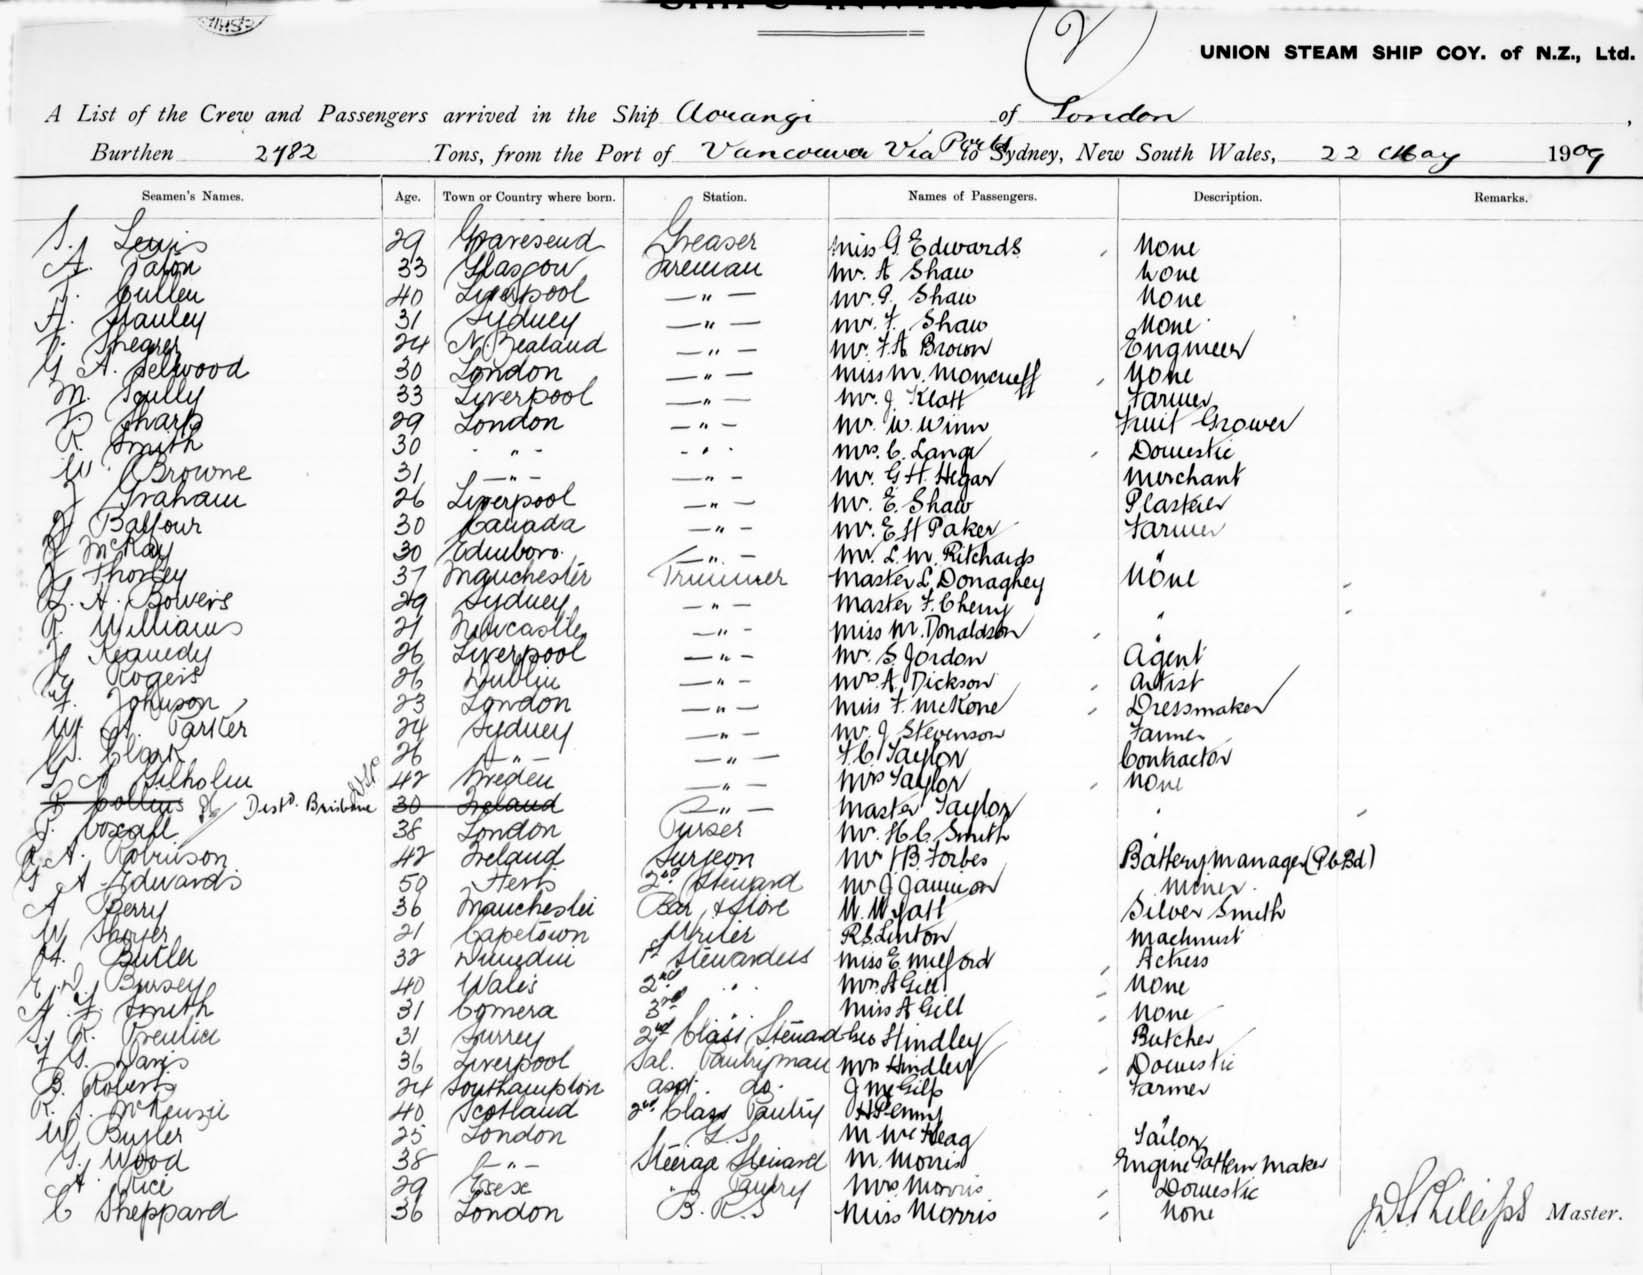 UNION STEAM SHIP COY. of N.Z., Ltd.
A List of the Crew and Passengers arrived in the Ship Aorangi of London,
Burthen 2782 Tons, from the Port of Vancouver Via Ports to Sydney, New South Wales, 22 May 1909
Seamen's Names. Age. Town or Country where born. Station. Names of Passengers. Description. Remarks.
S. Lewis 29 Gravesend Greaser Miss G. Edwards None
A. 33 Glasgow Fireman Mr. A Shaw None
Cullen 40 Liverpool — " — Mr. G. Shaw None
A. Stanley 31 Sydney — " — Mr. F. Shaw None
Shearer 24 N. Zealand — " — Mr. F A Brown Engineer
G A. Sellwood 30 London — " — Miss M. Moncrieff None
M. Scully 33 Liverpool — " — Mr. J Klatt Farmer
Sharp 29 London — " — Mr. W. Winn Fruit Grower
R. Smith 30 - " - - " - Mrs. C. Lang Domestic
W. Browne 31 — " — — " — Mr. G H. Hegar Merchant
J Graham 26 Liverpool — " — Mr. E. Shaw Plasterer
Balfour 30 Canada — " — Mr. E H Paker Farmer
McKay 30 Edinboro. — " — Mr. L. M. Ritchards "
J Thorley 37 Manchester Trimmer Master L Donaghey None
A. Bowers 29 Sydney — " — Master F. Cherry "
R. Williams 21 Newcastle — " — Miss M. Donaldson "
Kennedy 26 Liverpool — " — Mr. S. Jordon Agent
Rogers 26 Dublin — " — Mrs A. Dickson Artist
F. Johnson 23 London — " — Miss F. McKone Dressmaker
W. Parker 24 Sydney — " — Mr. J Stevenson Farmer
G. Clark 26 — " — — " — F. C. Taylor Contractor
A Silholm 42 Sweden — " — Mrs Taylor None
Collins Dist. Brisbane 30 Ireland — " — Master Taylor "
Coxall 38 London Purser Mr. H C Smith "
A. Robinson 42 Ireland Surgeon Mr J B. Forbes Battery Manager
G A Edwards 50 Herts 2nd Steward Mr J. Jamison Miner
A Berry 36 Manchester Bar & Store W. Wyatt Silver Smith
W Shorer 21 Capetown Writer R S Linton Machinist
H. Butler 32 Dunedin 1st Stewardess Miss E. Milford Actress
E. D. Bursey 40 Wales 2nd " Mrs A Gill None
A F Smith 31 Comera 3rd " Miss A Gill None
S. R. Prentice 31 Surrey 2nd Class Steward Geo Hindley Butcher
F G. Davis 36 Liverpool Sal. Pantryman Mrs Hindley Domestic
B. Roberts 24 Southampton asst. do. J McGilp Farmer
R. S. McKenzie 40 Scotland 2nd Class Pantry H Penny
W Butler 25 London G.S. M McHeag Tailor
G. Wood 38 — " — Steerage Steward M. Morris Engine Pattern Maker
A. Rice 29 Essex " Pantry Mrs Morris Domestic
C Sheppard 36 London B. R. S Miss Morris None
Phillips Master.